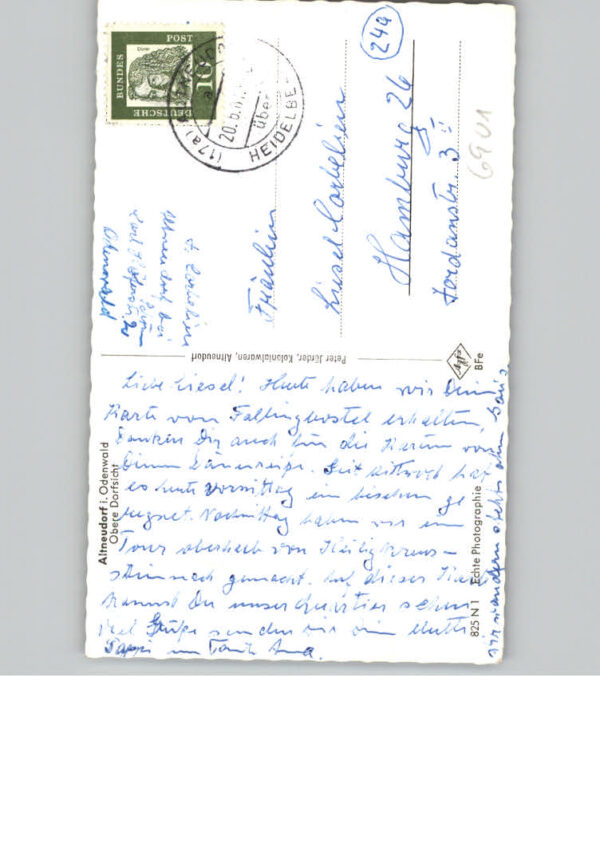 BUNDES POST
DEUTSCHE
Dürer
10
(17a)
20.
über
HEIDELBE
24a
Fräulein
Liesel
Hamburg 26
Jordanstr. 3
6901
Odenwald
Peter Jörder, Kolonialwaren, Altneudorf
Agfa
BFe
Altneudorf i. Odenwald
Obere Dorfsicht
825 N 1 Echte Photographie
Liebe Liesel! Heute haben wir Deine
Karte von Fallingbostel erhalten,
danken Dir auch für die Karten von
Deiner Dänenreise. Seit Mittwoch hat
es heute Vormittag ein bisschen ge
regnet. Nachmittag haben wir eine
Tour oberhalb von Heiligkreuz-
steinach gemacht. Auf dieser Karte
kannst Du unser Quartier sehen
Viel Grüße senden Dir Deine Mutti
Pappi und Tante Anna.